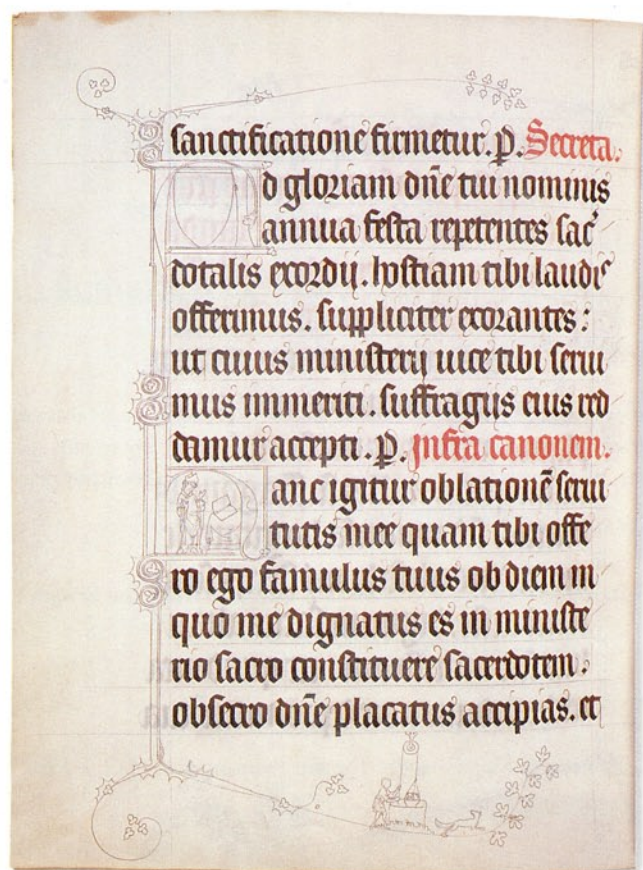 sanctificatione firmetur. P. Secreta.
d gloriam dne tui nominis
annua festa repetentes sac
dotalis exordij. hostiam tibi laudis
offerimus. suppliciter exorantes:
ut cuius ministerij uice tibi serui
mus immeriti. suffragijs eius red
damur accepti. P. infra canonem.
anc igitur oblationē serui
tutis mee quam tibi offe
ro ego famulus tuus ob diem in
quo me dignatus es in ministe
rio sacro constituere sacerdotem.
obsecro dne placatus accipias. et